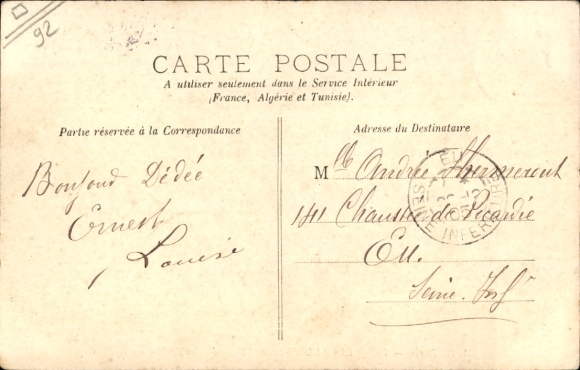 92
CARTE POSTALE
A utiliser seulement dans le Service Intérieur
(France, Algérie et Tunisie).
Partie réservée à la Correspondance
Adresse du Destinataire
Bonjour Dédée
Ernest
Louise
Mlle Andrée
141 Chaussée de Picardie
Eu.
Seine Infre
EU
SEINE INFERIEURE